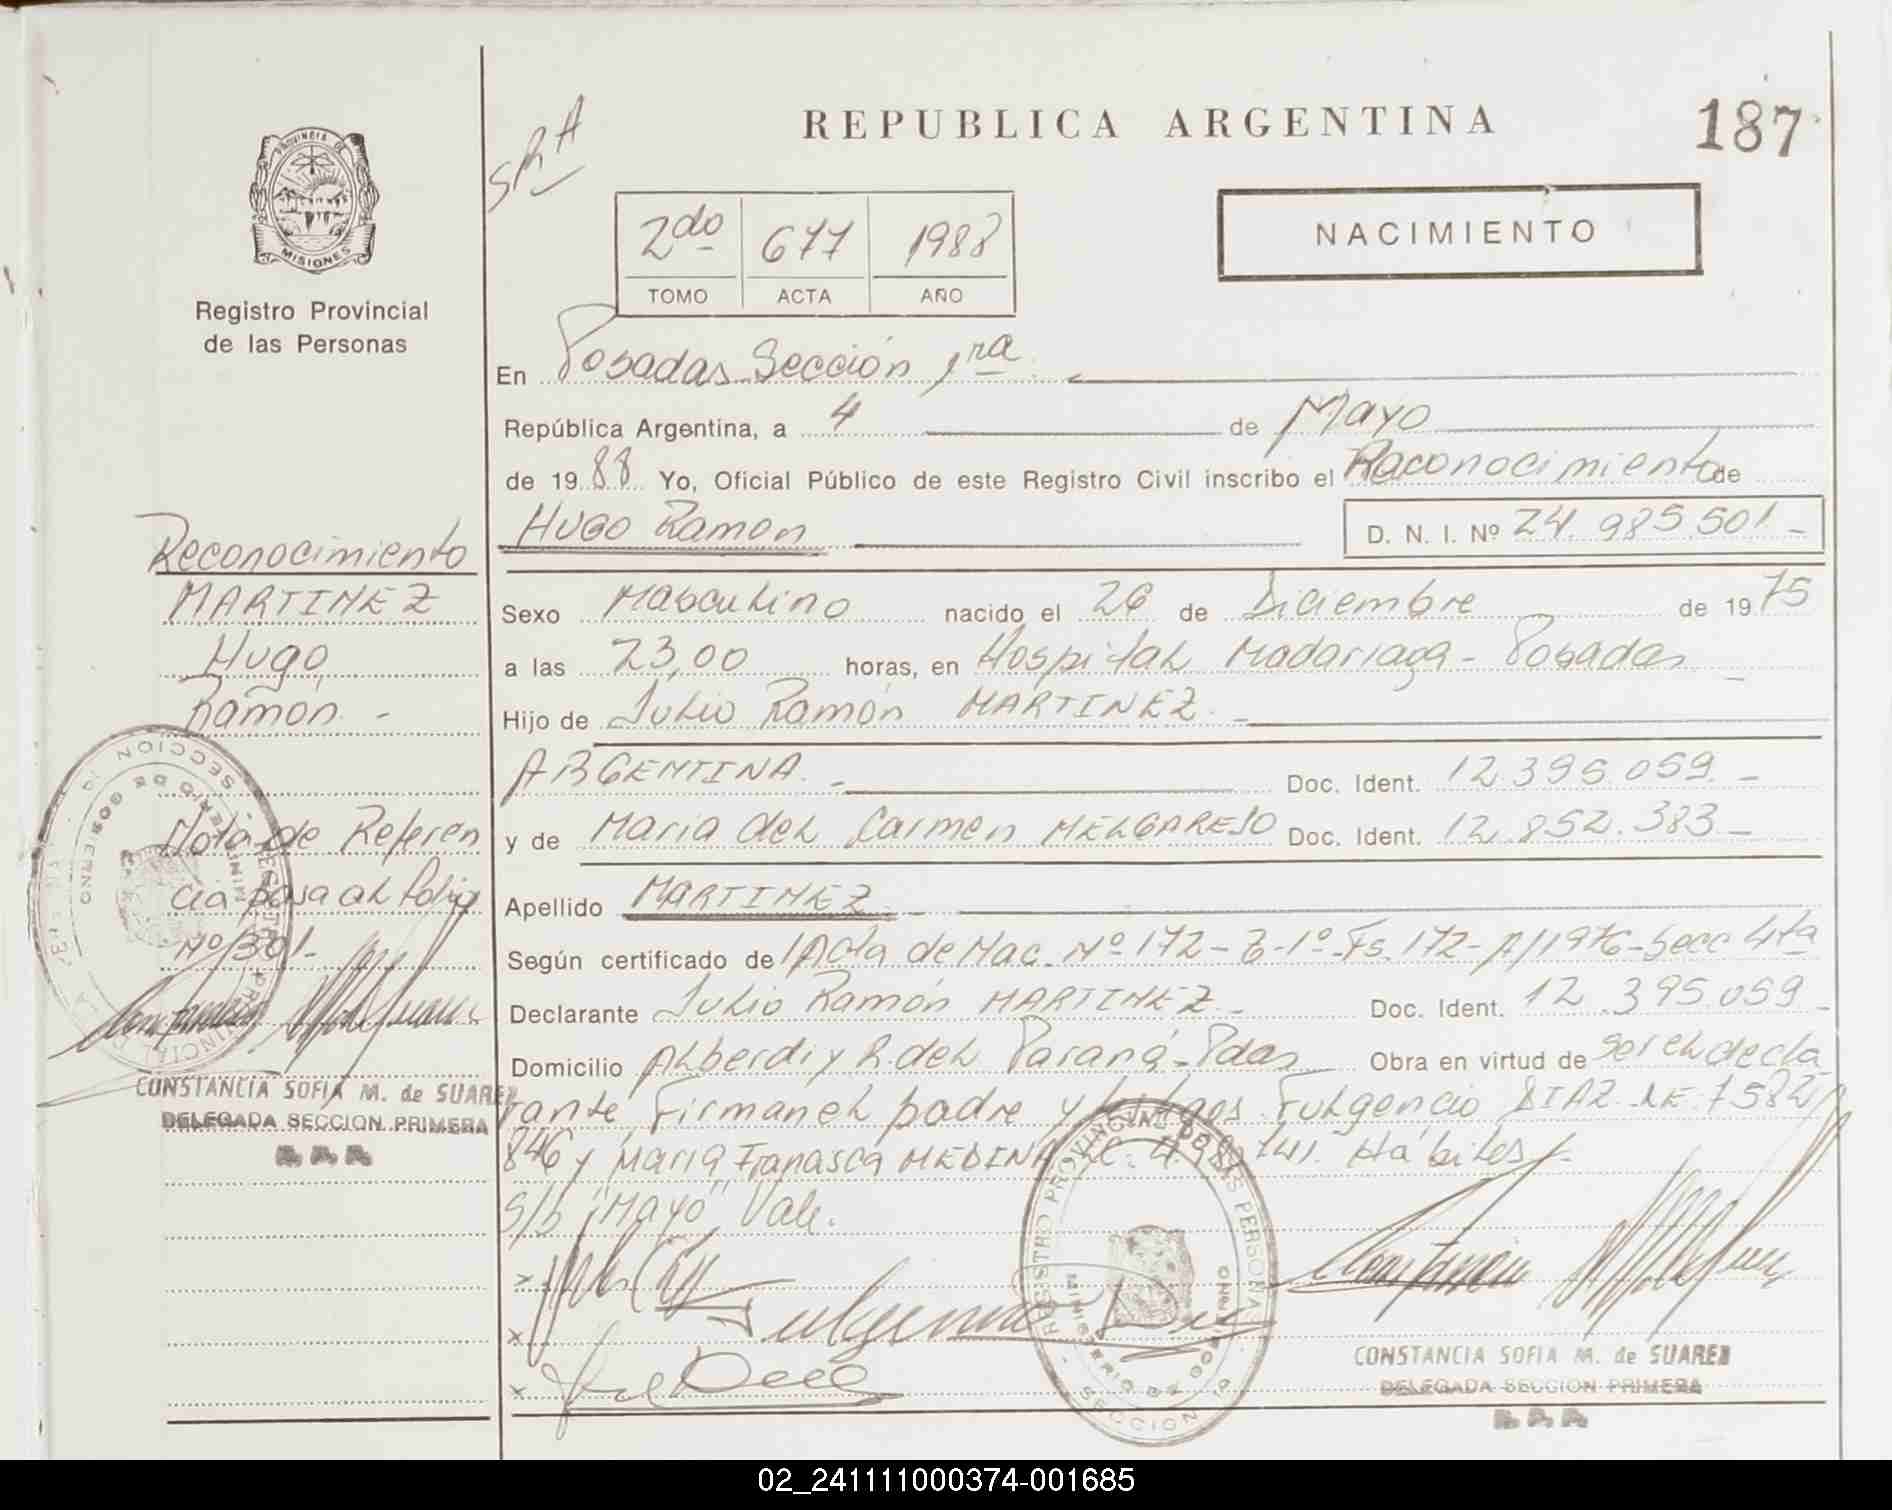 REPUBLICA ARGENTINA
187
SRA
PROVINCIA DE
MISIONES
Registro Provincial
de las Personas
2do 677 1988
TOMO ACTA AÑO
NACIMIENTO
En Posadas Sección 1ra
República Argentina, a 4 de Mayo
de 1988 Yo, Oficial Público de este Registro Civil inscribo el Raconocimiento de
Hugo Ramon D. N. I. Nº 24.985.501.-
Sexo Masculino nacido el 26 de Diciembre de 1975
a las 23,00 horas, en Hospital Madariaga - Posadas
Hijo de Julio Ramón MARTINEZ.-
ARGENTINA.- Doc. Ident. 12.395.059.-
y de Maria del Carmen MELGAREJO Doc. Ident. 12.852.383-
Apellido MARTINEZ.
Según certificado de Acta de Nac. Nº 172-T-1º-Fs.172-A/1976-Secc 4ta
Declarante Julio Ramón MARTINEZ.- Doc. Ident. 12.395.059-
Domicilio Alberdi y R. del Paraná - Pdas Obra en virtud de ser el decla
rante, Firman el padre y testigos Fulgencio DIAZ. LE. 7582
846 y Maria Francisca MEDINA LC. Hábiles.-
S/b "Mayo", Vale.
Reconocimiento
MARTINEZ
Hugo
Ramón.-
Nota de Referen
cia pasa al Folio
Nº 301.-
CONSTANCIA SOFIA M. de SUAREZ
DELEGADA SECCION PRIMERA
Fulgencio Diaz
REGISTRO PROVINCIAL DE LAS PERSONAS
MINISTERIO DE GOBIERNO
SECCION 1a
CONSTANCIA SOFIA M. de SUAREZ
DELEGADA SECCION PRIMERA
02_241111000374-001685